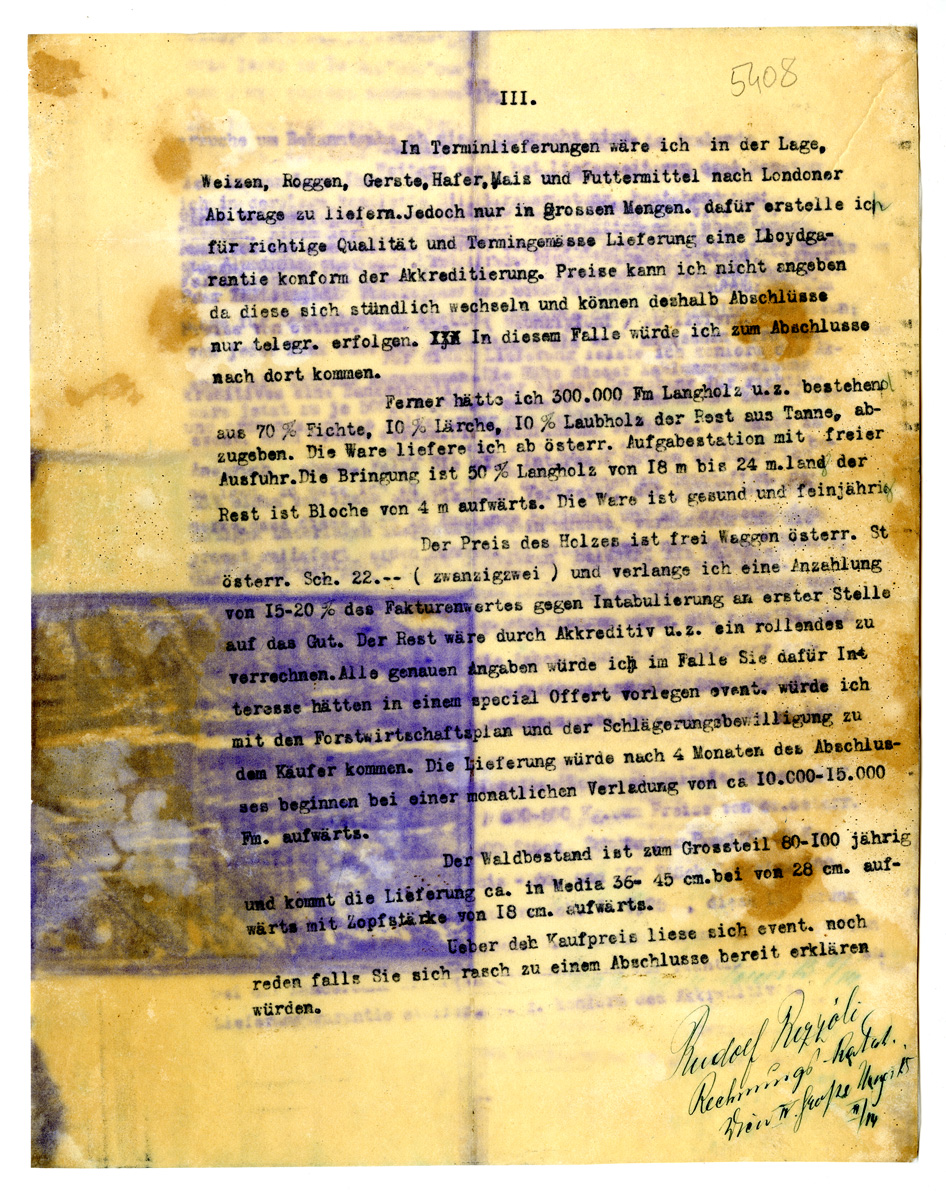 5408
III.
In Terminlieferungen wäre ich in der Lage,
Weizen, Roggen, Gerste,Hafer,Mais und Futtermittel nach Londoner
Abitrage zu liefern.Jedoch nur in grossen Mengen. dafür erstelle ich
für richtige Qualität und Termingemässe Lieferung eine Lloydga-
rantie konform der Akkreditierung. Preise kann ich nicht angeben
da diese sich stündlich wechseln und können deshalb Abschlüsse
nur telegr. erfolgen. In diesem Falle würde ich zum Abschlusse
nach dort kommen.
Ferner hätte ich 300.000 Fm Langholz u.z. bestehend
aus 70 % Fichte, IO % Lärche, IO % Laubholz der Rest aus Tanne, ab-
zugeben. Die Ware liefere ich ab österr. Aufgabestation mit freier
Ausfuhr.Die Bringung ist 50 % Langholz von I8 m bis 24 m.land der
Rest ist Bloche von 4 m aufwärts. Die Ware ist gesund und feinjährig
Der Preis des Holzes ist frei Waggon österr. St
österr. Sch. 22.-- ( zwanzigzwei ) und verlange ich eine Anzahlung
von I5-20 % des Fakturenwertes gegen Intabulierung an erster Stelle
auf das Gut. Der Rest wäre durch Akkreditiv u.z. ein rollendes zu
verrechnen.Alle genauen Angaben würde ich im Falle Sie dafür Int
teresse hätten in einem special Offert vorlegen event. würde ich
mit den Forstwirtschaftsplan und der Schlägerungsbewilligung zu
dem Käufer kommen. Die Lieferung würde nach 4 Monaten des Abschlus-
ses beginnen bei einer monatlichen Verladung von ca IO.000-I5.000
Fm. aufwärts.
Der Waldbestand ist zum Grossteil 80-I00 jährig
und kommt die Lieferung ca. in Media 36- 45 cm.bei von 28 cm. auf-
wärts mit Zopfstärke von I8 cm. aufwärts.
Ueber deh Kaufpreis liese sich event. noch
reden falls Sie sich rasch zu einem Abschlusse bereit erklären
würden.
Rudolf
Rechnungs
Wien IV. Große
II/14